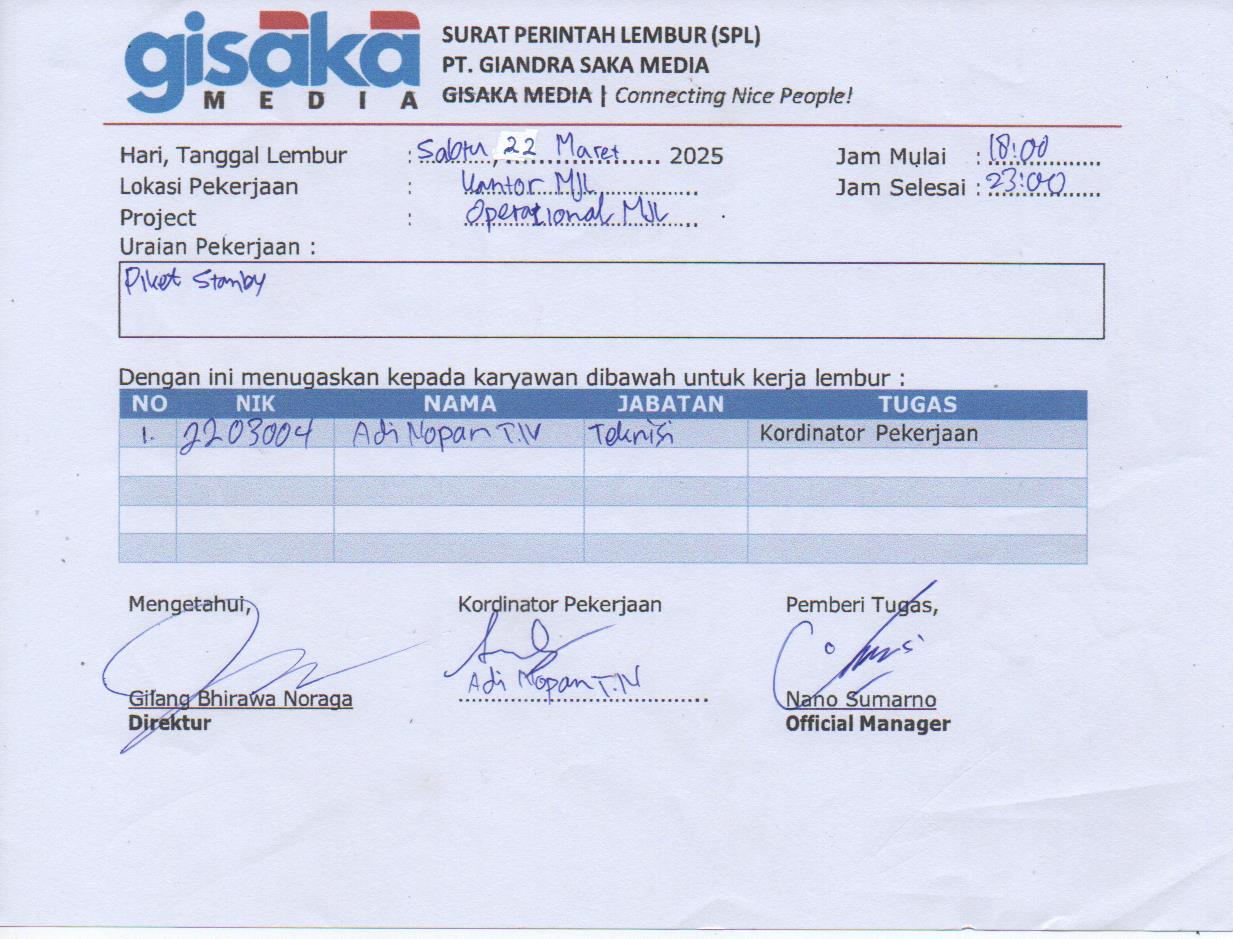 gisaka
MEDIA
SURAT PERINTAH LEMBUR (SPL)
PT. GIANDRA SAKA MEDIA
GISAKA MEDIA | Connecting Nice People!
Hari, Tanggal Lembur : Sabtu, 22 Maret 2025 Jam Mulai : 18:00
Lokasi Pekerjaan : Kantor MJL Jam Selesai : 23:00
Project : Operational MJL
Uraian Pekerjaan :
Piket Stanby
Dengan ini menugaskan kepada karyawan dibawah untuk kerja lembur :
NO NIK NAMA JABATAN TUGAS
1. 2203004 Adi Nopan T.W Teknisi Kordinator Pekerjaan
Mengetahui, Kordinator Pekerjaan Pemberi Tugas,
Adi Nopan T.W
Gilang Bhirawa Noraga Nano Sumarno
Direktur Official Manager